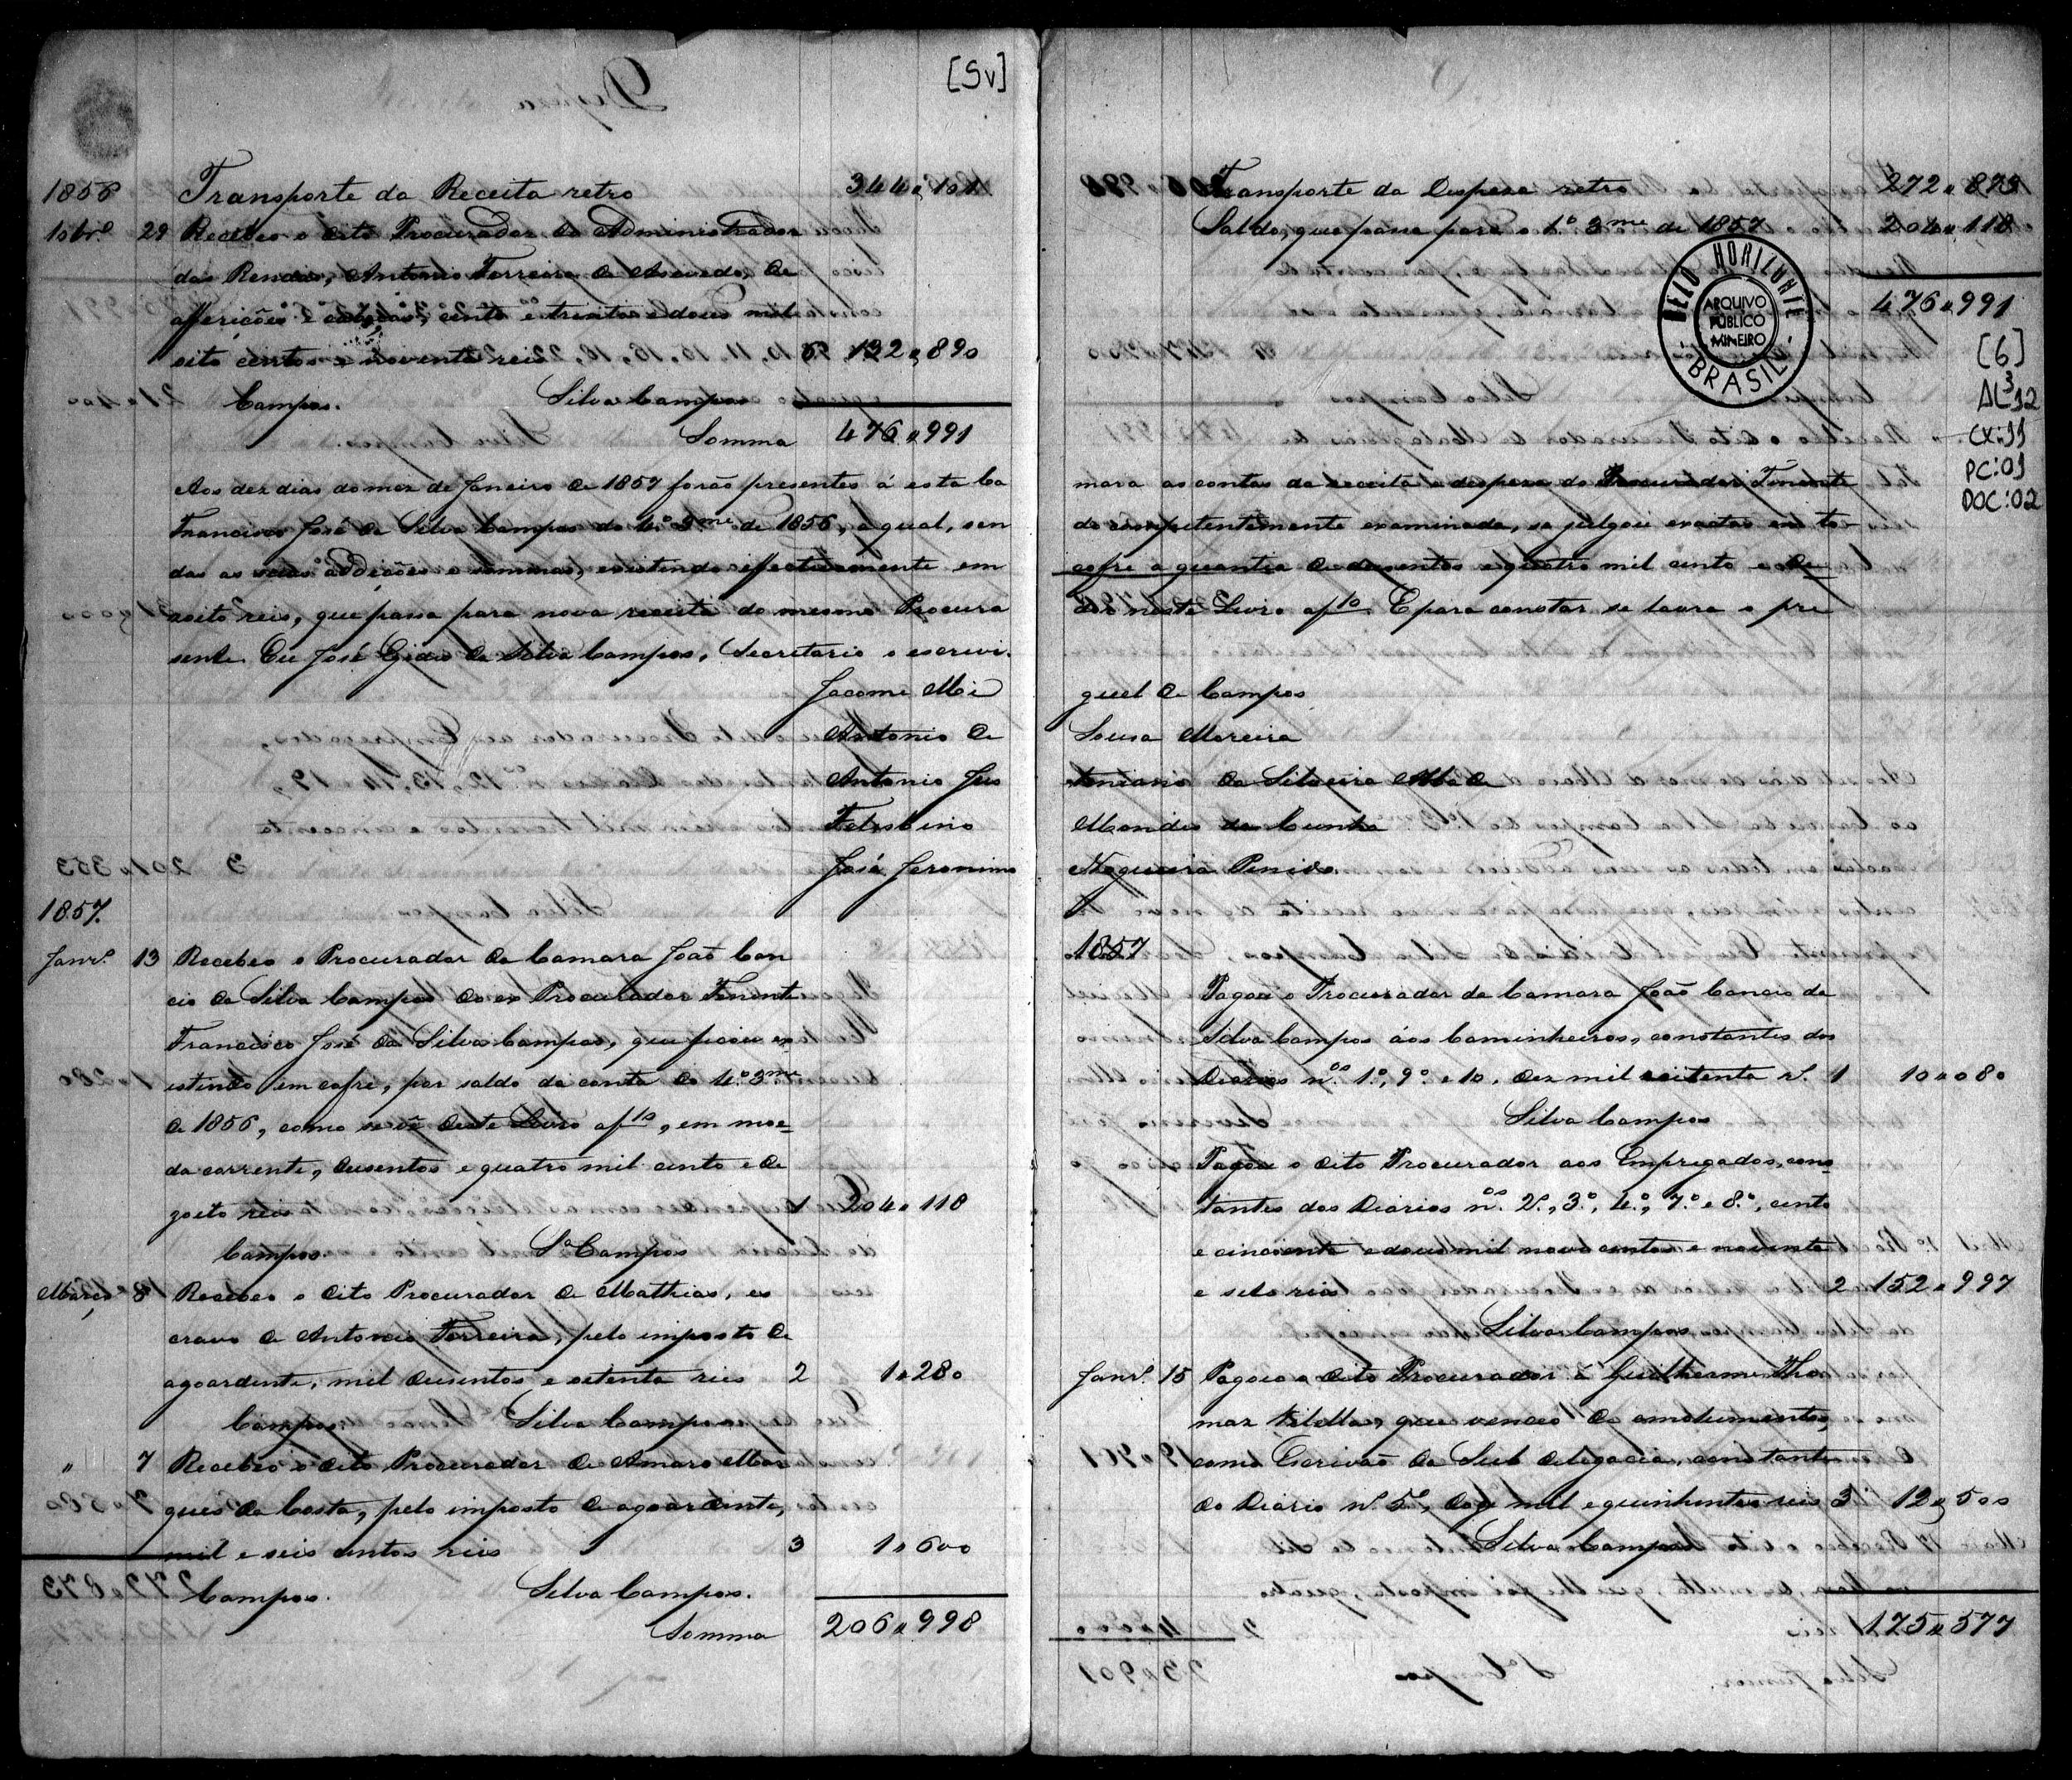 [5v]
1856 Transporte da Receita retro 344"101
10br.º 29 Recebeo o dito Procurador do Administrador
das Rendas, Antonio Ferreira de Asevedo, de
afferições e cabeças, cento e trinta e dous mil
oito centos e noventa reis 6 132"890
Campos. Silva Campos
Somma 476"991
Aos dez dias do mez de Janeiro de 1857 forão presentes á esta Ca
Francisco José da Silva Campos do 4.º 3.me de 1856, a qual, sen
das as suas addições e sommas, existindo effectivamente em
zoito reis, que passa para nova receita do mesmo Procura
sente. Eu José Egidio da Silva Campos, Secretario o escrevi.
Jacome Mi
Antonio de
Antonio Jus
Felisbino
José Jeronimo
1857.
Janr.º 13 Recebeo o Procurador da Camara João Can
cio da Silva Campos do ex Procurador Tenente
Francisco José da Silva Campos, que ficou ex
istindo em cofre, por saldo da conta do 4.º 3.me
de 1856, como se vê deste Livro a f 10, em moe
da corrente, dusentos e quatro mil cento e de
zoito reis 1 204"118
Campos. S.ª Campos
Março 8 Recebeo o dito Procurador de Mathias, es
cravo de Antonio Ferreira, pelo imposto de
agoardente, mil dusentos e oitenta reis 2 1"280
Campos. Silva Campos
" 7 Recebeo o dito Procurador de Amaro Mar
ques da Costa, pelo imposto de agoardente,
mil e seis centos reis 3 1"600
Campos. Silva Campos.
Somma 206"998
Transporte da Despeza retro 272"873
Saldo, que passa para o 1.º 3.me de 1857 204"118
476"991
BELO HORIZONTE
ARQUIVO PÚBLICO MINEIRO
BRASIL
[6]
AL³12
CX:11
PC:01
DOC:02
mara as contas da receita e despeza do Procurador Tenente
do competentemente examinada, se julgou exactas em to-
cofre a quantia de dusentos e quatro mil cento e de
dor neste Livro a f 10. E para constar se lavra o pre
guel de Campos
Sousa Moreira
tiniano da Silveira
Mendes da Cunha
Nogueira Penido
1857
Pagou o Procurador da Camara João Cancio da
Silva Campos áos Caminheiros, constantes dos
Diarios n.os 1.º, 9.º e 10, dez mil e oitenta r.s 1 10"080
Silva Campos
Pagou o dito Procurador aos Empregados, cons
tantes dos Diarios n.os 2.º, 3.º, 4.º, 7.º e 8.º, cento
e cincoenta e dous mil nove centos e noventa
e sete reis 2 152"997
Silva Campos
Janr.º 15 Pagou o dito Procurador á Guilherme Tho
maz, que venceo de emolumentos,
como Escrivão da Sub delegacia, constante
do Diario n.º 5.º, doze mil e quinhentos reis 3 12"500
Silva Campos
175"577